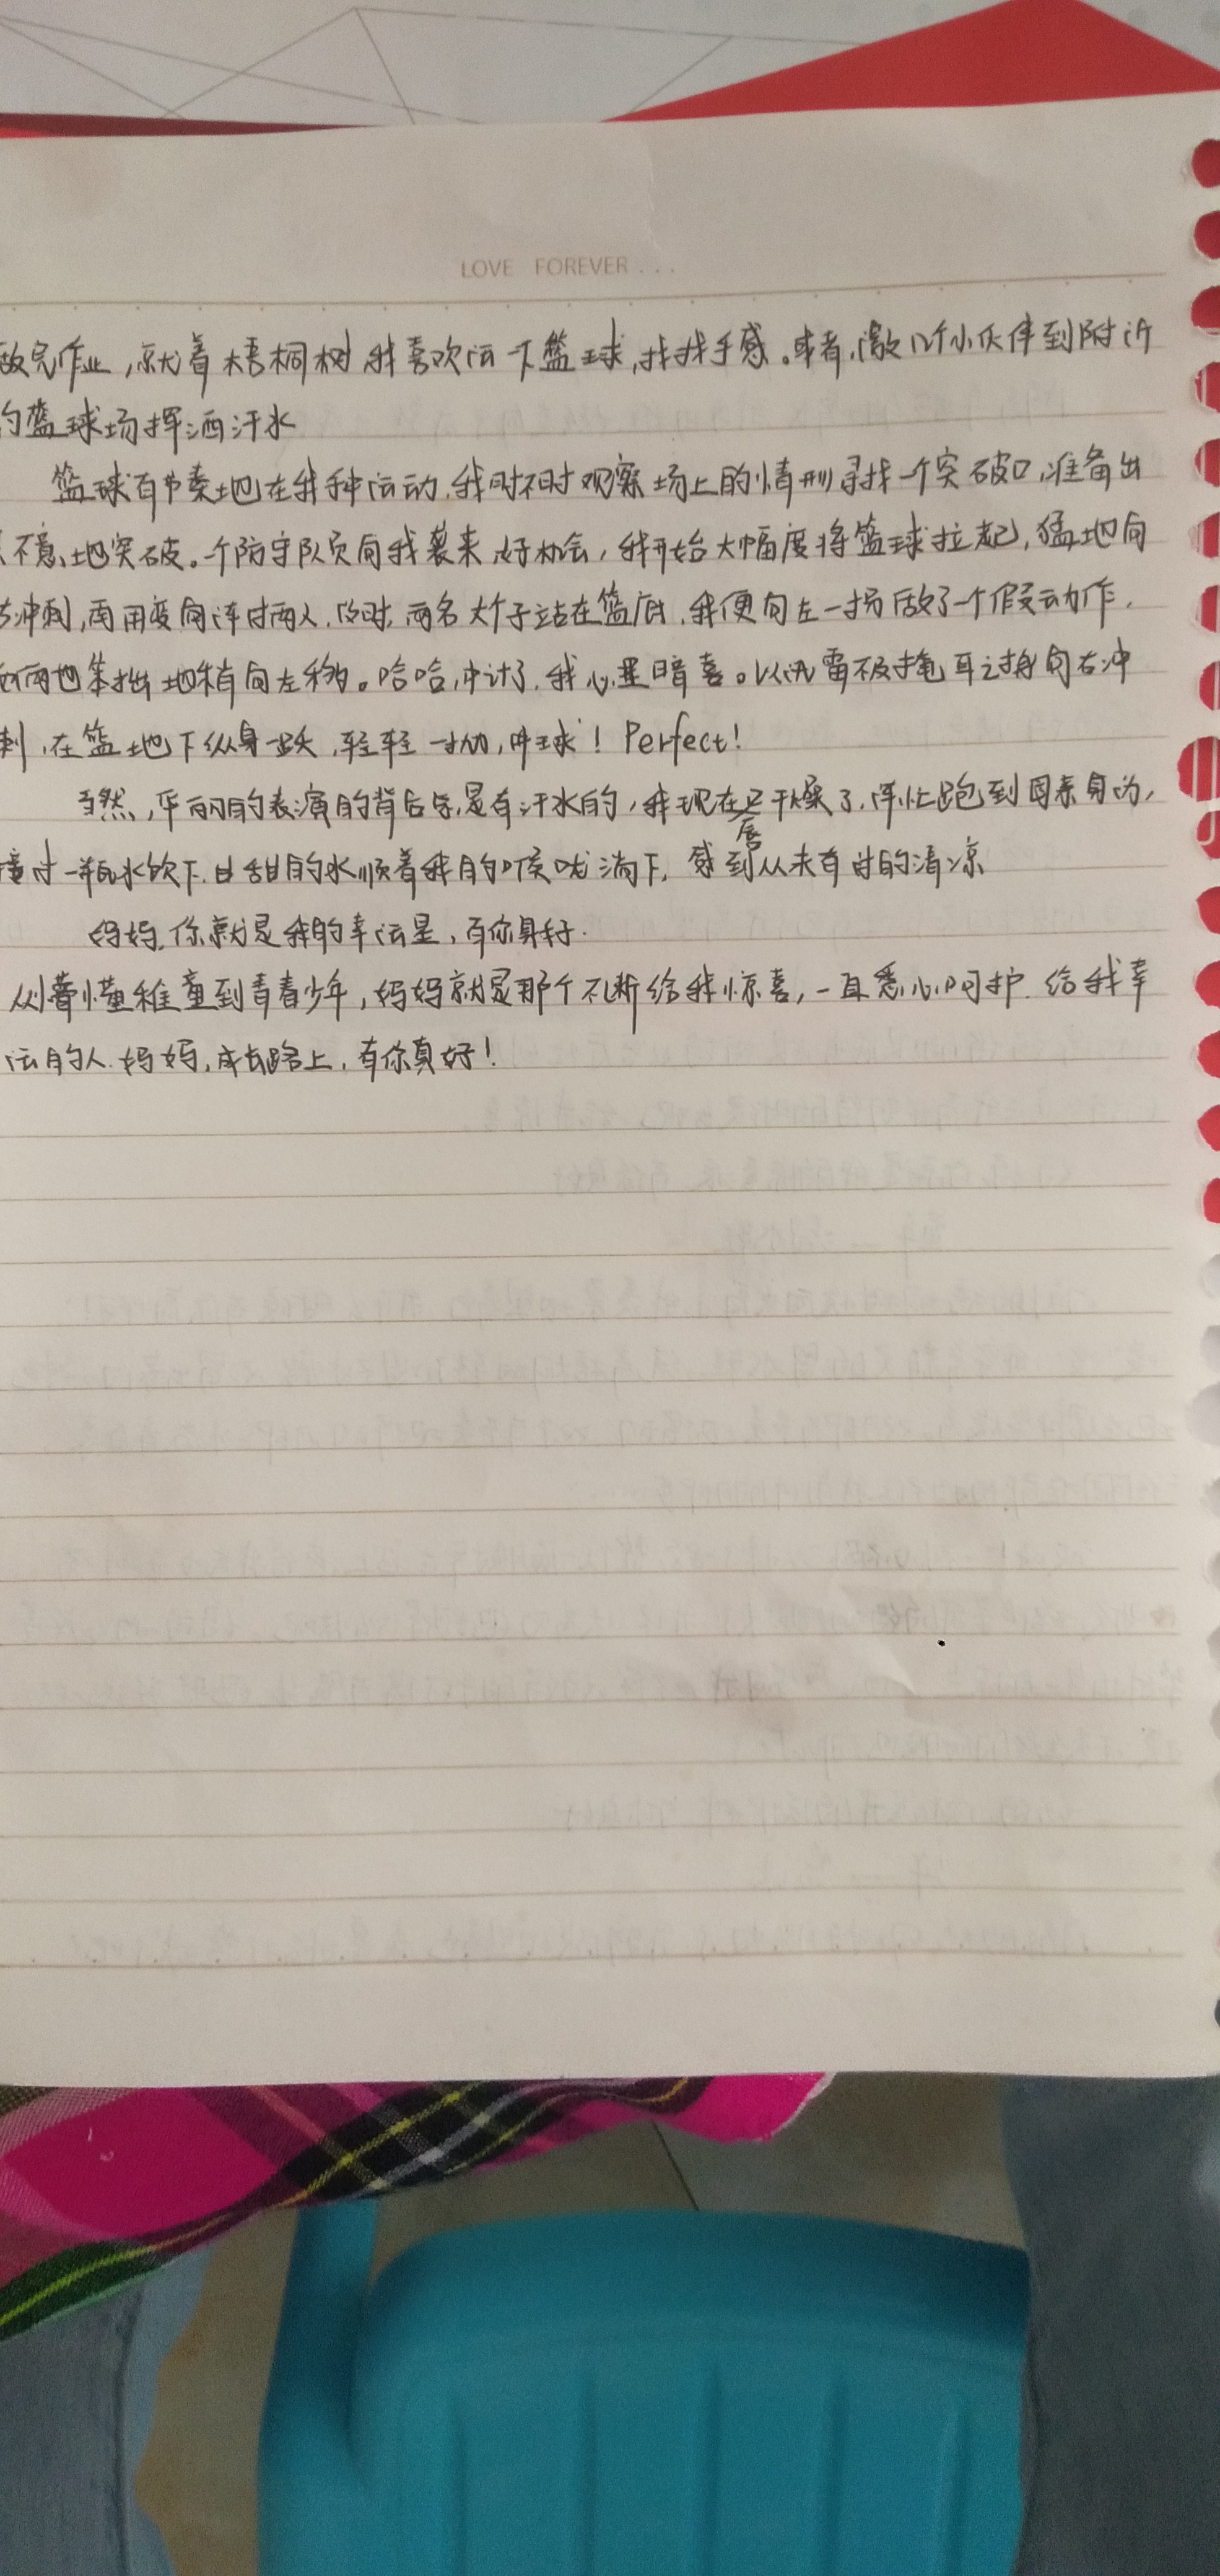 LOVE FOREVER...
做完作业,就着梧桐树,我喜欢运一下篮球,找找手感。或者,邀几个小伙伴到附近
的篮球场挥洒汗水
篮球有节奏地在我手中运动,我时不时观察场上的情形寻找一个突破口,准备出
不意地突破。一个防守队员向我袭来,好机会,我开始大幅度将篮球拉起,猛地向
右冲刺,再用变向连过两人,这时,两名大个子站在篮底,我便向左一扬做了一个假动作,
他笨拙地稍向左移。哈哈,中计了,我心里暗喜。以迅雷不及掩耳之势向右冲
刺,在篮地下纵身一跃,轻轻一抛,进球!Perfect!
当然,华丽的表演的背后是有汗水的,我现在口干唇燥了,连忙跑到妈妈身边,
接过一瓶水饮下,甘甜的水顺着我的喉咙淌下,感到从未有过的清凉
妈妈,你就是我的幸运星,有你真好.
从懵懂稚童到青春少年,妈妈就是那个不断给我惊喜,一直悉心呵护,给我幸
运的人.妈妈,成长路上,有你真好!